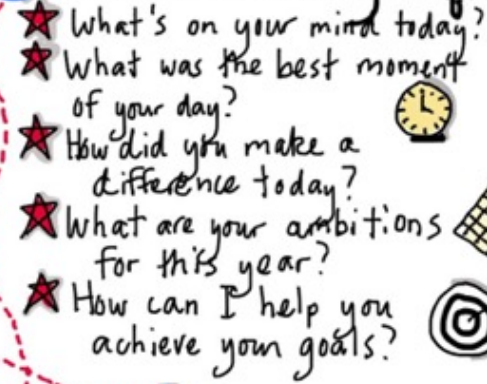 What's on your mind today?
What was the best moment
of your day?
How did you make a
difference today?
What are your ambitions
for this year?
How can I help you
achieve your goals?